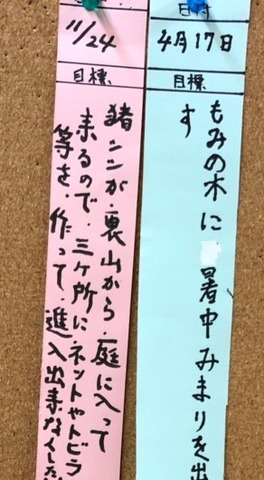 日付
4月17日
目標
もみの木に 暑中みまりを出
す
11/24
目標
猪ンシが、裏山から、庭に入って
来るので、三ケ所に、ネットやトビラ
等を、作って、進入出来なくした